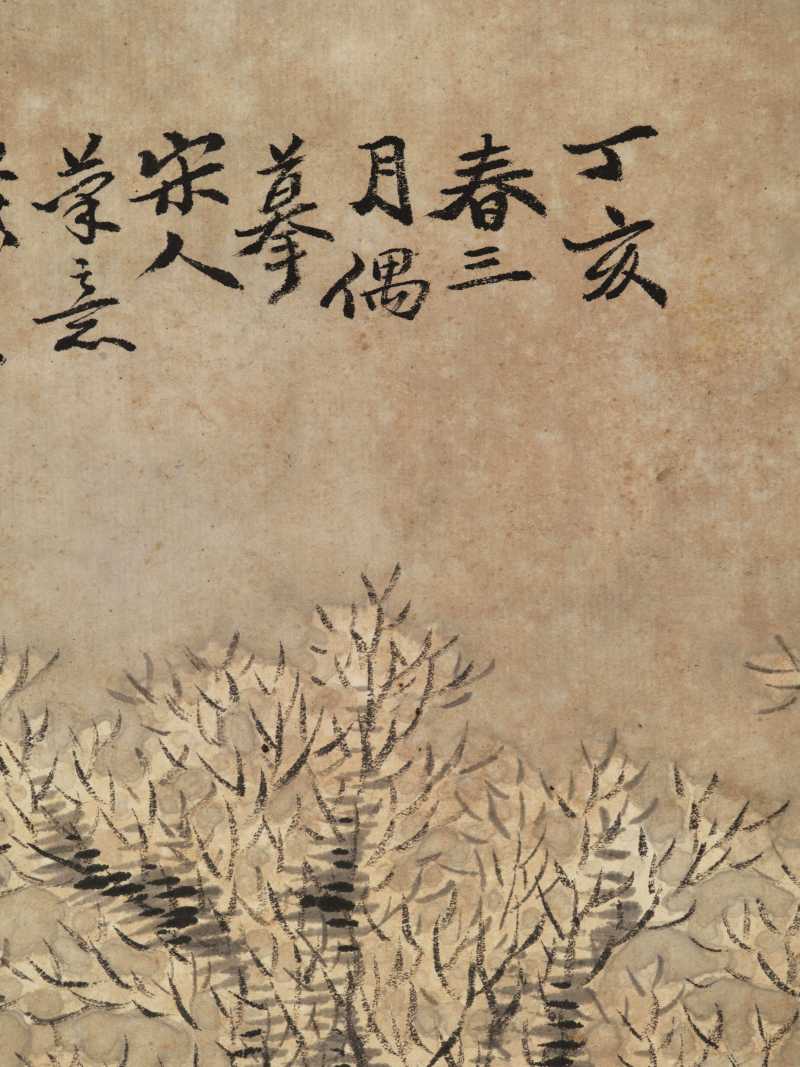 丁亥
春三
月偶
摹
宋人
筆意